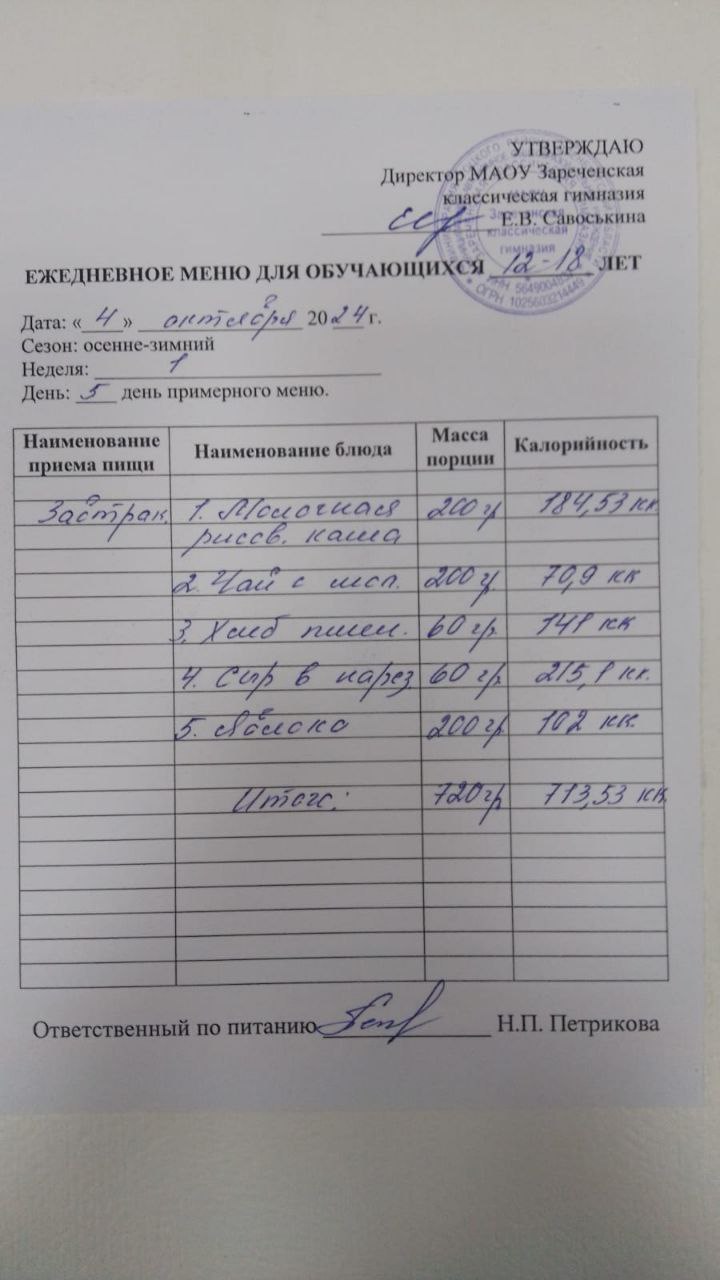 УТВЕРЖДАЮ
Директор МАОУ Зареченская
классическая гимназия
Е.В. Савоськина
Зареченская
классическая
гимназия
ОГРН 1025603214449
ЕЖЕДНЕВНОЕ МЕНЮ ДЛЯ ОБУЧАЮЩИХСЯ 12-18 ЛЕТ
Дата: «4» октября 2024 г.
Сезон: осенне-зимний
Неделя: 1
День: 5 день примерного меню.
Наименование приема пищи Наименование блюда Масса порции Калорийность
Завтрак. 1. Молочная 200 гр 184,53 кк.
рисов. каша
2. Чай с мол. 200 гр. 70,9 кк
3. Хлеб пшен. 60 гр. 141 кк
4. Сыр в нарез. 60 гр. 215,1 кк.
5. Яблоко 200 гр 102 кк.
Итого: 720 гр 713,53 кк.
Ответственный по питанию Н.П. Петрикова